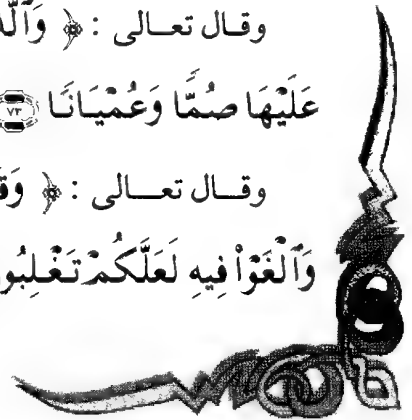 وقال تعالى : ﴿ وَٱلَّ
عَلَيْهَا صُمًّا وَعُمْيَانًا ﴿٧٣﴾
وقال تعالى : ﴿ وَقَ
وَٱلْغَوْا۟ فِيهِ لَعَلَّكُمْ تَغْلِبُو